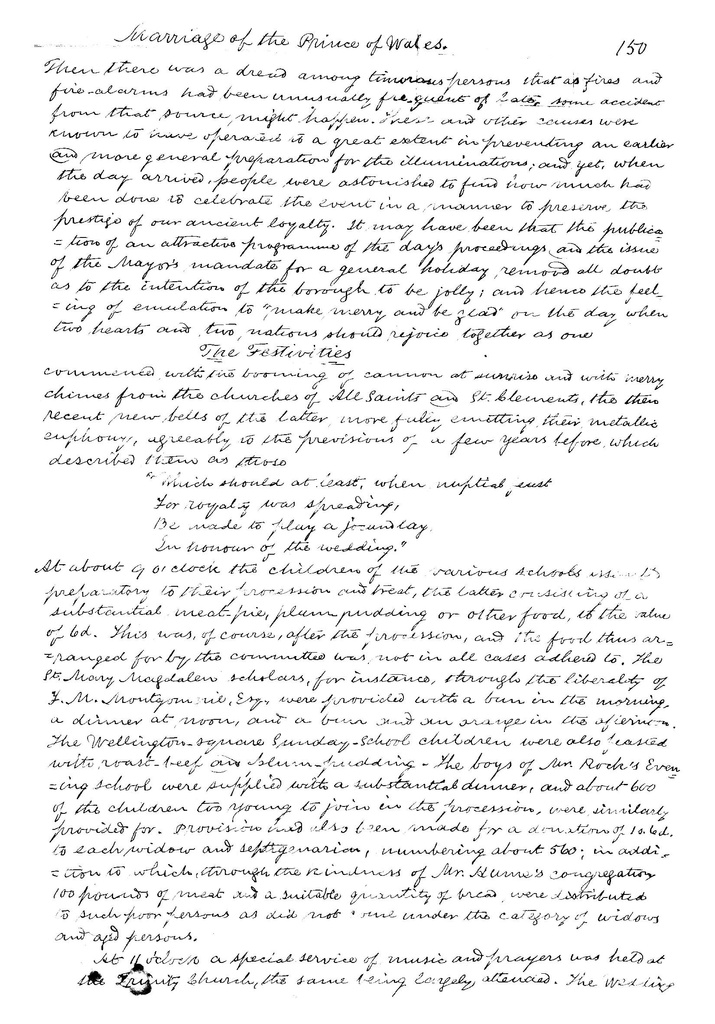 Marriage of the Prince of Wales.
150
Then there was a dread among timorous persons that as fires and
fire-alarms had been unusually frequent of late, some accident
from that source might happen. These and other causes were
known to have operated to a great extent in preventing an earlier
and more general preparation for the illuminations; and yet, when
the day arrived, people were astonished to find how much had
been done to celebrate the event in a manner to preserve the
prestige of our ancient loyalty. It may have been that the publica=
=tion of an attractive programme of the day's proceedings and the issue
of the Mayor's mandate for a general holiday removed all doubt
as to the intention of the borough to be jolly; and hence the feel-
=ing of emulation to "make merry and be glad" on the day when
two hearts and two nations should rejoice together as one
The Festivities
commenced with the booming of cannon at sunrise and with merry
chimes from the churches of All Saints and St. Clements, the then
recent new bells of the latter, more fully emitting their metallic
euphony, agreeably to the previsions of a few years before, which
described them as those
"Which should at least, when nuptial feast
For royalty was spreading,
Be made to play a jocund lay
In honour of the wedding."
At about 9 o'clock the children of the various schools
preparatory to their procession and treat, the latter consisting of a
substantial meat-pie, plum pudding or other food, to the value
of 6d. This was, of course, after the procession, and the food thus ar=
=ranged for by the committee was not in all cases adhered to. The
St. Mary Magdalen scholars, for instance, through the liberality of
F. M. Montgomrie, Esq. were provided with a bun in the morning,
a dinner at noon, and a bun and an orange in the afternoon.
The Wellington-square Sunday-School children were also feasted
with roast-beef and plum-pudding - The boys of Mr. Rock's Even=
=ing school were supplied with a substantial dinner, and about 600
of the children too young to join in the procession, were similarly
provided for. Provision had also been made for a donation of 1s. 6d.
to each widow and septuagenarian, numbering about 560; in addi=
=tion to which, through the kindness of Mr. Hume's congregation
100 pounds of meat and a suitable quantity of bread were distributed
to such poor persons as did not come under the category of widows
and aged persons.
At 11 o'clock a special service of music and prayers was held at
the Trinity Church, the same being largely attended. The Wedding